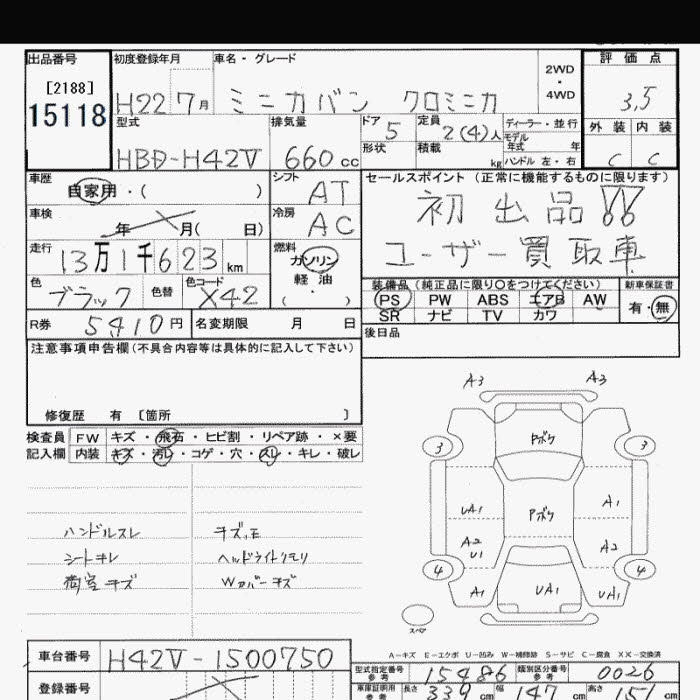 出品番号
[2188]
15118
初度登録年月
H22 7月
車名・グレード
ミニカバン クロミニカ
2WD
・
4WD
評価点
3.5
型式
HBD-H42V
排気量
660cc
ドア
5
定員
2(4)人
ディーラー・並行
モデル
年式 年
形状
積載
kg
ハンドル 左・右
外装 内装
C C
車歴
自家用・( )
シフト
AT
セールスポイント (正常に機能するものに限ります)
初出品!!
ユーザー買取車
車検
年 月( 日)
冷房
AC
走行
13万1千623km
燃料
ガソリン
軽油
( ・ )
色
ブラック
色替
色コード
X42
装備品(純正品に限り○をつけてください)
PS PW ABS エアB AW
SR ナビ TV カワ
新車保証書
有・無
R券
5410円
名変期限 月 日
後日品
注意事項申告欄(不具合内容等は具体的に記入して下さい)
修復歴 有 〔箇所 〕
検査員
記入欄
FW キズ・飛石・ヒビ割・リペア跡・×要
内装 キズ・汚レ・コゲ・穴・スレ・キレ・破レ
ハンドルスレ
シートキレ
荷室キズ
ヘッドライトクモリ
Wカバーキズ
A3 A3
Pボケ
3 3
Pボケ
UA1 A1
A2 A2
U1
4 4
A1 UA1 UA1
スペア
A-キズ E-エクボ U-凹み W-補修跡 S-サビ C-腐食 XX-交換済
車台番号
H42V-1500750
登録番号
型式指定番号
参考
15486
類別区分番号
参考
0026
車庫証明用
参考
長さ
339cm
幅
147cm
高さ
cm